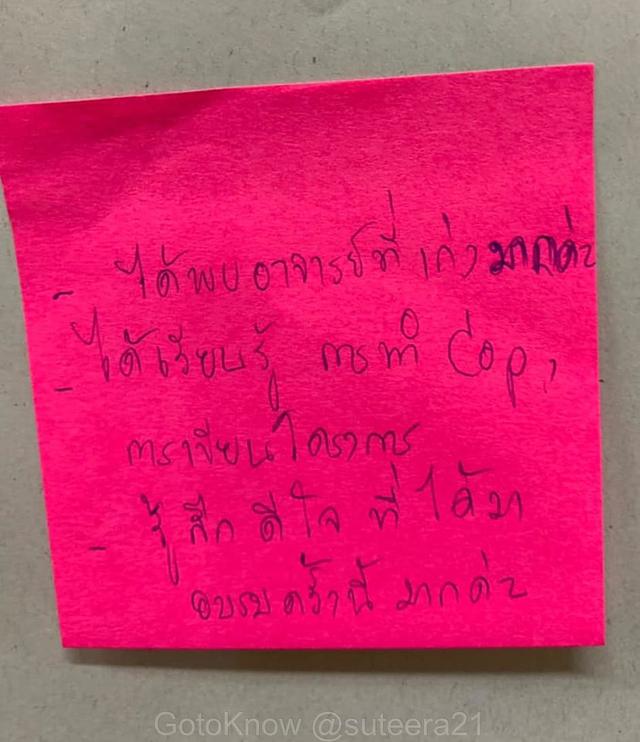 - ได้พบอาจารย์ที่เก่งมากค่ะ
- ได้เรียนรู้ การทำ Cop,
การเขียนโครงการ
- รู้สึกดีใจ ที่ได้มา
อบรมครั้งนี้ มากค่ะ
GotoKnow @suteera21